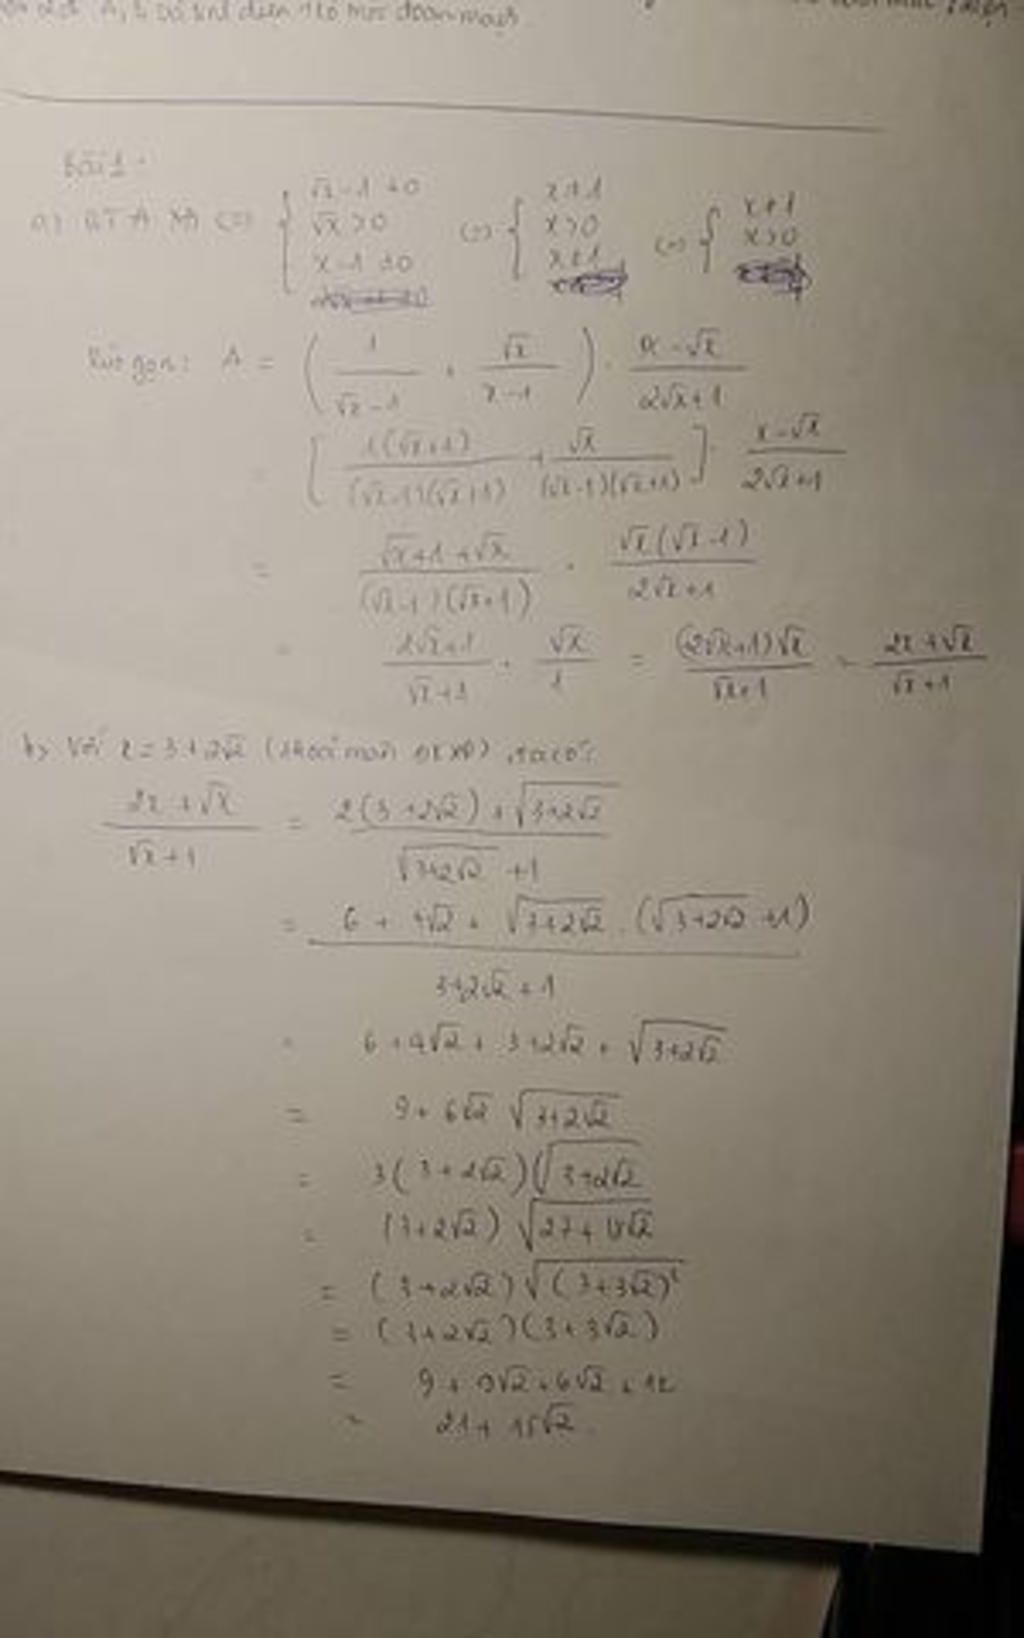 Bài 1:
a) BT A XĐ (=) { √x - 1 ≠ 0 (=) { x ≠ 1 (=) { x ≠ 1
√x > 0 x > 0 x > 0
x - 1 ≠ 0 x ≠ 1
Rút gọn: A = ( 1/(√x - 1) + √x/(x - 1) ) . (x - √x)/(2√x + 1)
= [ 1(√x + 1)/((√x - 1)(√x + 1)) + √x/((√x - 1)(√x + 1)) ] . (x - √x)/(2√x + 1)
= (√x + 1 + √x)/((√x - 1)(√x + 1)) . √x(√x - 1)/(2√x + 1)
= (2√x + 1)/(√x + 1) . √x/1 = (2√x + 1)√x/(√x + 1) = (2x + √x)/(√x + 1)
b) Với x = 3 + 2√2 (thoả mãn ĐKXĐ), ta có:
(2x + √x)/(√x + 1) = (2(3 + 2√2) + √(3+2√2))/(√(3+2√2) + 1)
= (6 + 4√2 + √(3+2√2) . (√(3+2√2) + 1))/(3+2√2 + 1)
= 6 + 4√2 + 3+2√2 + √(3+2√2)
= 9 + 6√2 √(3+2√2)
= 3(3 + 2√2)(√(3+2√2)
= (3+2√2) √(27 + 18√2)
= (3+2√2)√((3+3√2)²)
= (3+2√2)(3+3√2)
= 9 + 9√2 + 6√2 + 12
= 21 + 15√2.